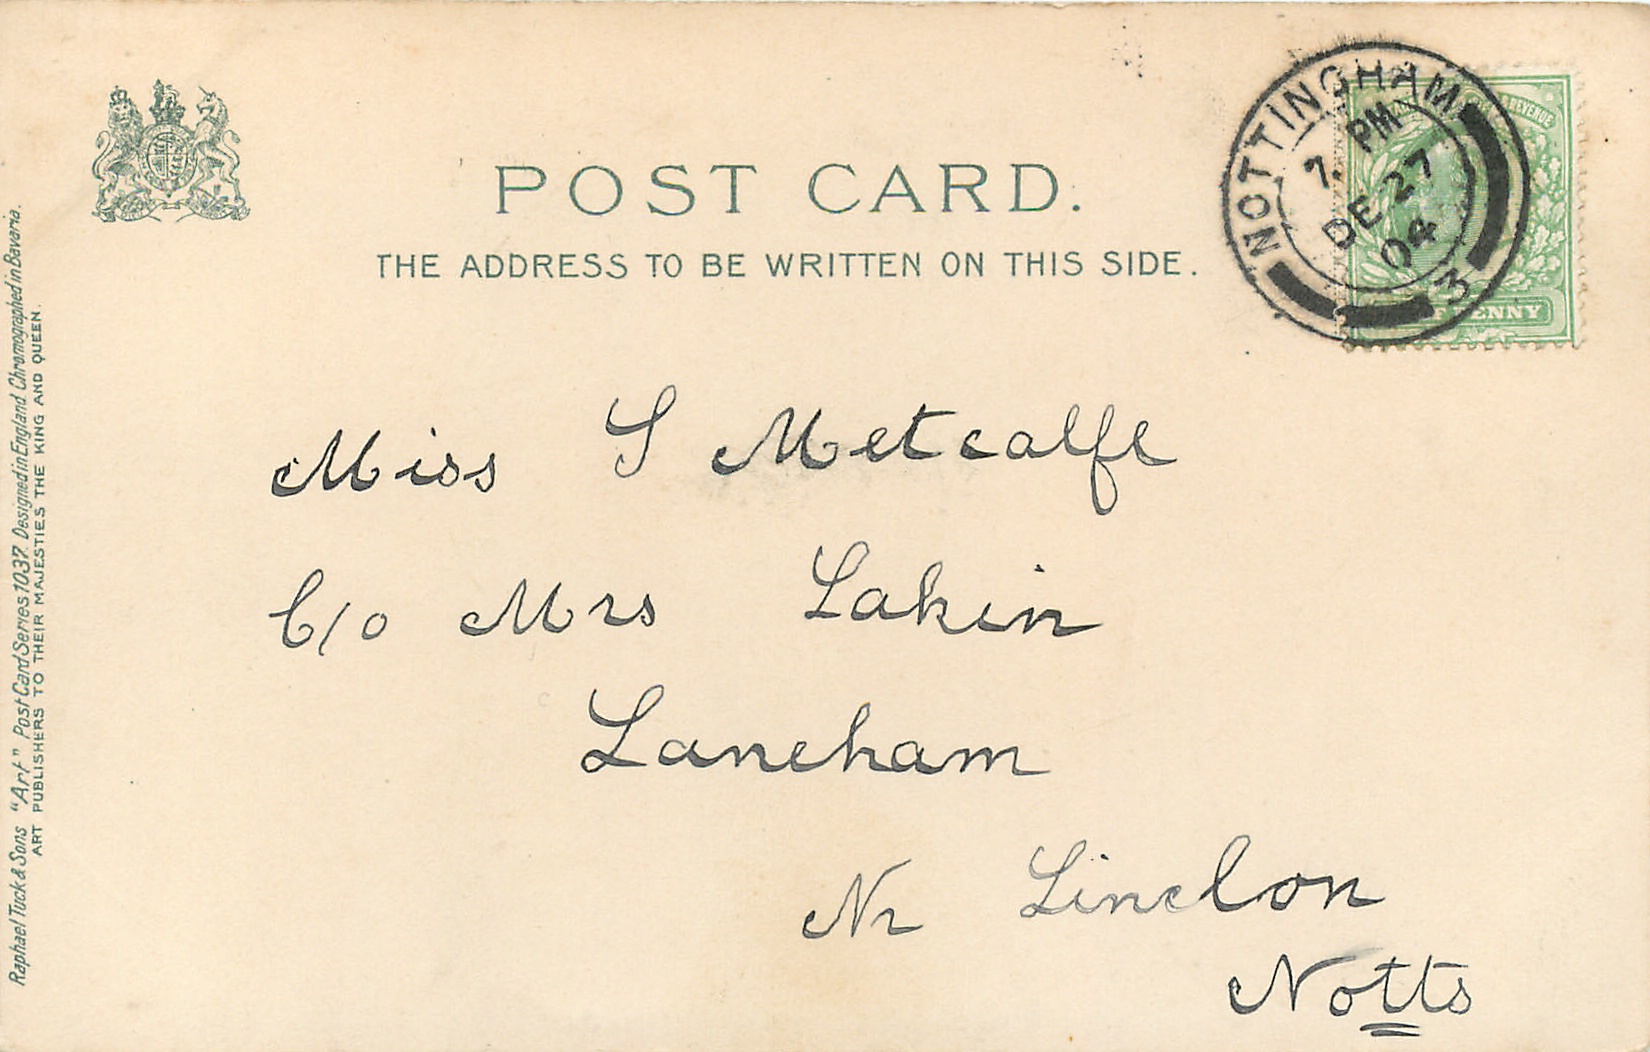 POST CARD.
THE ADDRESS TO BE WRITTEN ON THIS SIDE.
NOTTINGHAM
7. PM
DE 27
04
3
REVENUE
PENNY
Miss S Metcalfe
C/o Mrs Lakin
Laneham
Nr Linclon
Notts
Raphael Tuck & Sons "Art" Post Card Series 1037. Designed in England Chromographed in Bavaria.
ART PUBLISHERS TO THEIR MAJESTIES THE KING AND QUEEN.